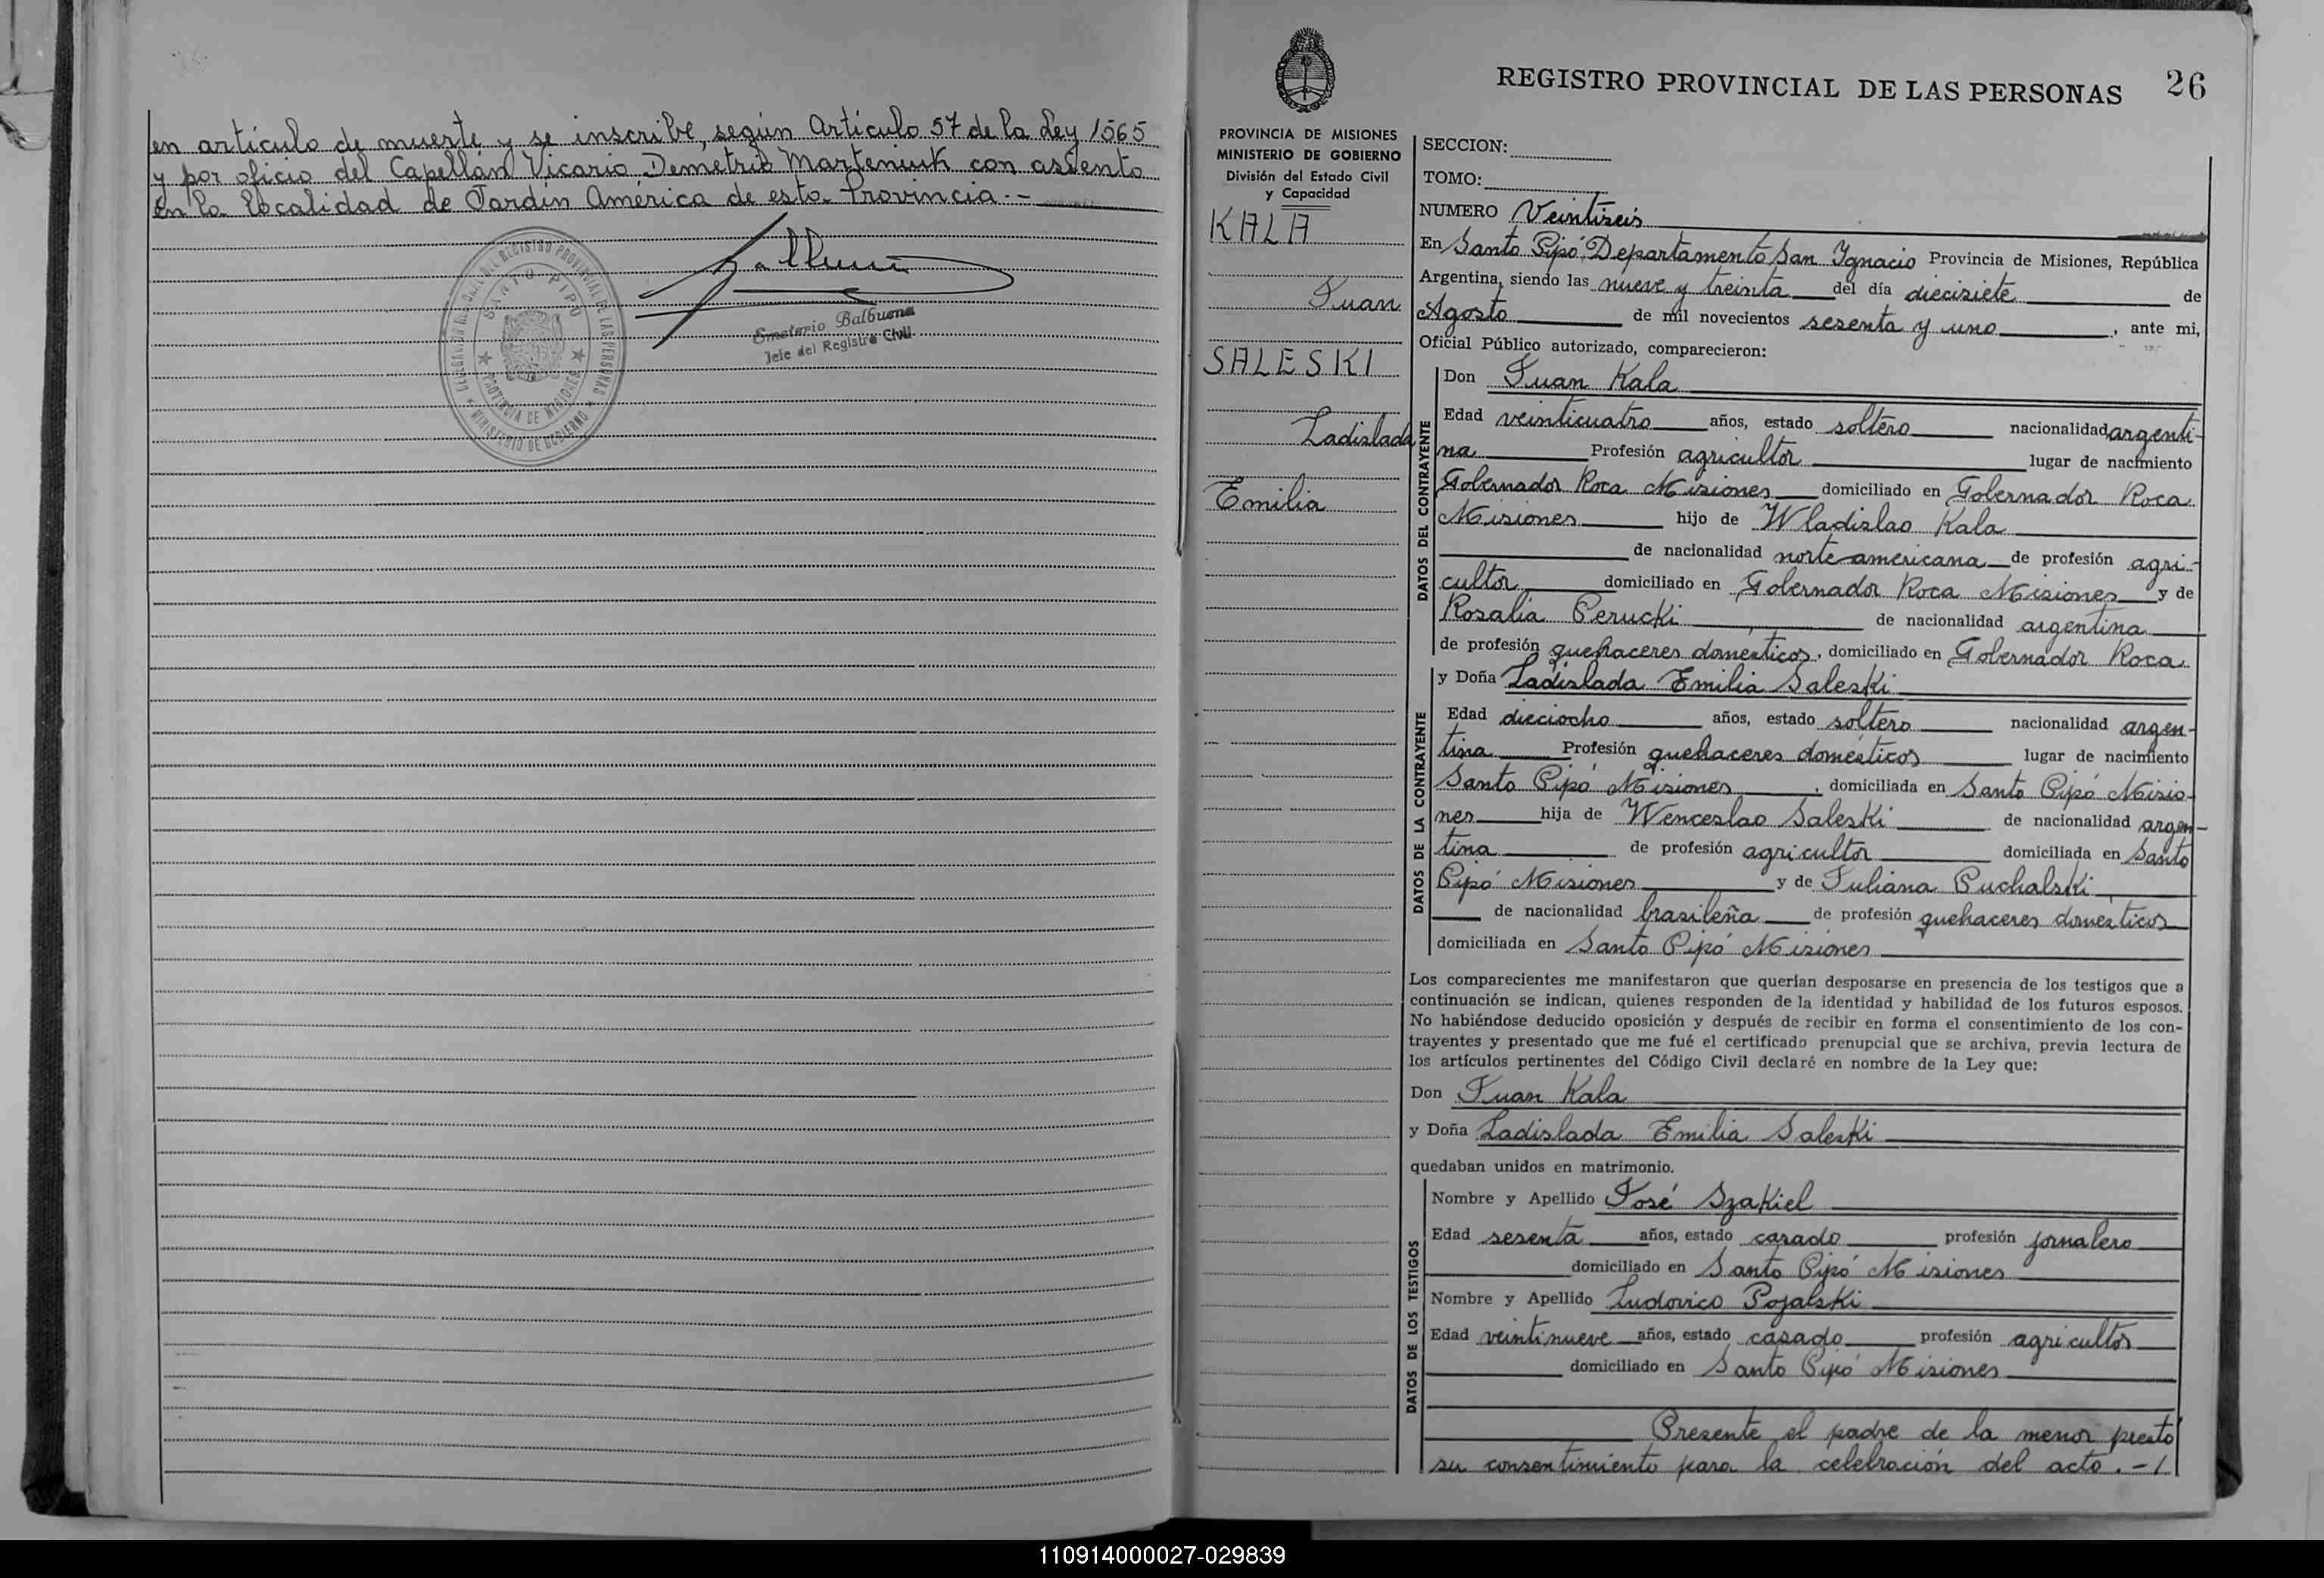 en artículo de muerte y se inscribe, según Artículo 57 de la Ley 1565
y por oficio del Capellán Vicario Demetrio Marteniuk con asiento
en la localidad de Jardín América de esta Provincia.-
DELEGACION REGIONAL DEL REGISTRO PROVINCIAL DE LAS PERSONAS
SANTO PIPO
PROVINCIA DE MISIONES
MINISTERIO DE GOBIERNO
Emeterio Balbuena
Jefe del Registro Civil
REGISTRO PROVINCIAL DE LAS PERSONAS 26
PROVINCIA DE MISIONES
MINISTERIO DE GOBIERNO
División del Estado Civil
y Capacidad
KALA
Juan
SALESKI
Ladislada
Emilia
SECCION:
TOMO:
NUMERO Veintiseis
En Santo Pipó Departamento San Ignacio Provincia de Misiones, República
Argentina, siendo las nueve y treinta del día diecisiete de
Agosto de mil novecientos sesenta y uno, ante mi,
Oficial Público autorizado, comparecieron:
DATOS DEL CONTRAYENTE
Don Juan Kala
Edad veinticuatro años, estado soltero nacionalidad argenti-
na Profesión agricultor lugar de nacimiento
Gobernador Roca Misiones domiciliado en Gobernador Roca
Misiones hijo de Wladislao Kala
de nacionalidad norteamericana de profesión agri-
cultor domiciliado en Gobernador Roca Misiones y de
Rosalía Perucki de nacionalidad argentina
de profesión quehaceres domésticos, domiciliado en Gobernador Roca
DATOS DE LA CONTRAYENTE
y Doña Ladislada Emilia Saleski
Edad dieciocho años, estado soltero nacionalidad argen-
tina Profesión quehaceres domésticos lugar de nacimiento
Santo Pipó Misiones, domiciliada en Santo Pipó Misio-
nes hija de Wenceslao Saleski de nacionalidad argen-
tina de profesión agricultor domiciliada en Santo
Pipó Misiones y de Juliana Puchalski
de nacionalidad brasileña de profesión quehaceres domésticos
domiciliada en Santo Pipó Misiones
Los comparecientes me manifestaron que querían desposarse en presencia de los testigos que a
continuación se indican, quienes responden de la identidad y habilidad de los futuros esposos.
No habiéndose deducido oposición y después de recibir en forma el consentimiento de los con-
trayentes y presentado que me fué el certificado prenupcial que se archiva, previa lectura de
los artículos pertinentes del Código Civil declaré en nombre de la Ley que:
Don Juan Kala
y Doña Ladislada Emilia Saleski
quedaban unidos en matrimonio.
DATOS DE LOS TESTIGOS
Nombre y Apellido José Szakiel
Edad sesenta años, estado casado profesión jornalero
domiciliado en Santo Pipó Misiones
Nombre y Apellido Ludovico Pojalski
Edad veintinueve años, estado casado profesión agricultor
domiciliado en Santo Pipó Misiones
Presente el padre de la menor prestó
su consentimiento para la celebración del acto.-/
110914000027-029839